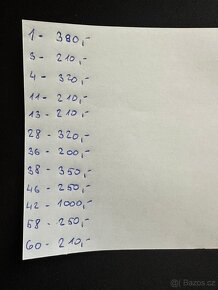 1 - 380,-
3 - 210,-
4 - 320,-
11 - 210,-
13 - 210,-
28 - 320,-
36 - 200,-
38 - 350,-
46 - 250,-
42 - 1000,-
58 - 250,-
60 - 210,-
Bazos.cz